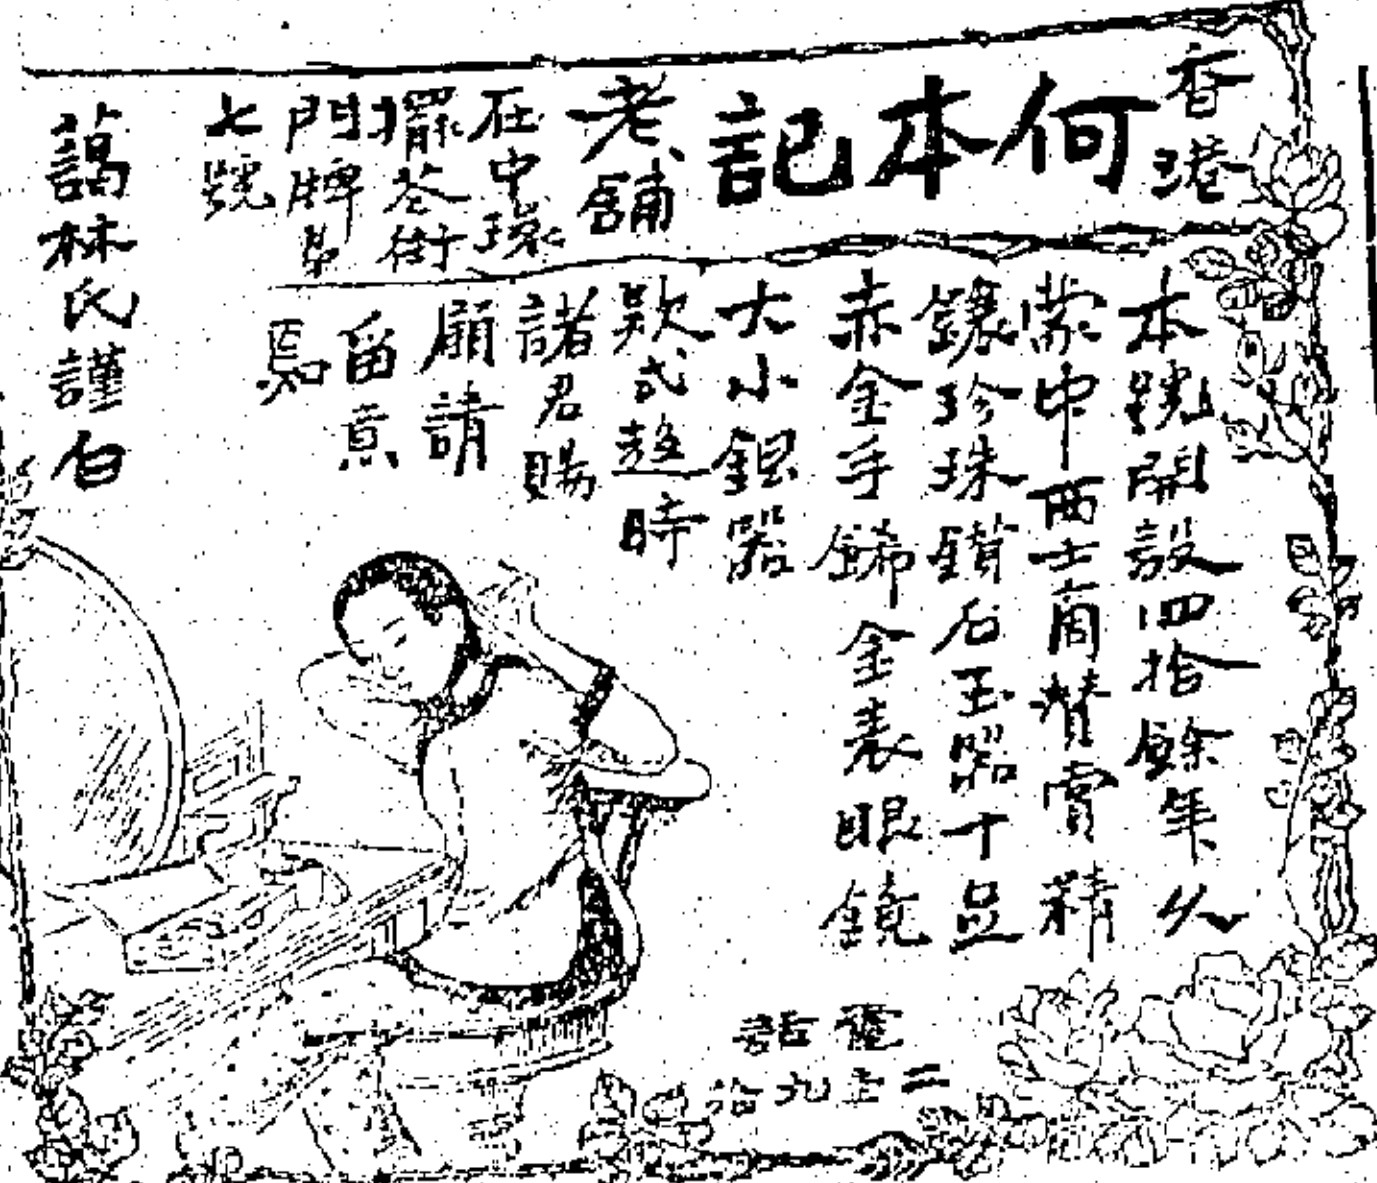 香港
何本記
老舖
在中環
擺花街
門牌第
七號
本號開設四拾餘年久
蒙中西士商贊賞精
鑲珍珠鑽石玉器十足
赤金手鈪金表眼鏡
大小銀器
欵式趨時
諸君賜
顧請
留意
焉
林氏謹白
電話
二
九